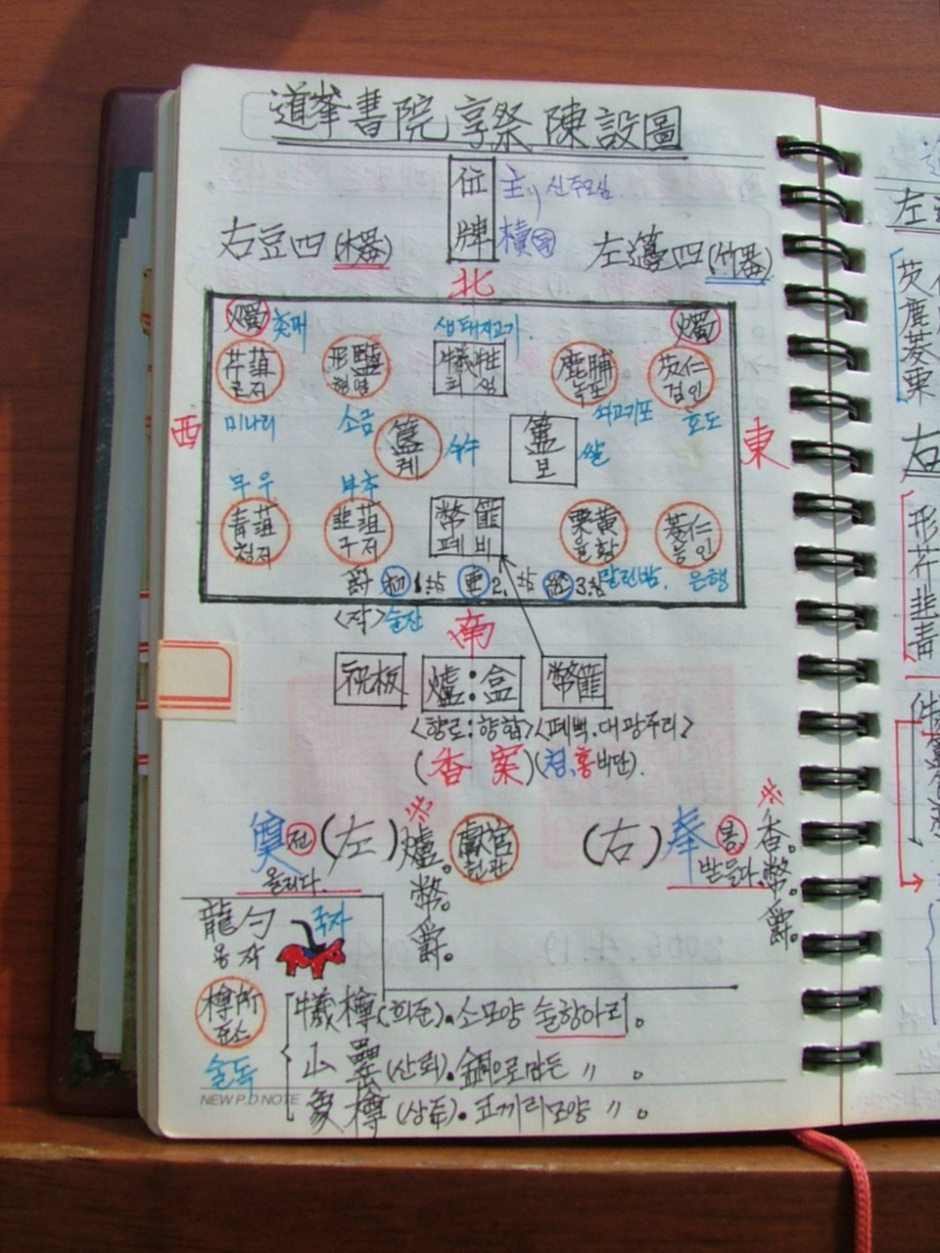 道峯書院 享祭 陳設圖
位 主, 신주모심.
牌 櫝
右豆四(木器) 左籩四(竹器)
北
燭 촛대 생돼지고기. 燭
芹菹 근저 形鹽 형염 犧牲 희생 鹿脯 녹포 芡仁 검인
미나리 소금 쇠고기포 호도
西 東
簋 궤 수수 簠 보 쌀
무우 부추
靑菹 청저 韭菹 구저 幣篚 폐비 栗黃 율황 菱仁 능인
말린밤. 은행
爵 初 1 亞 2. 終 3
<작> 술잔
南
祝板 爐:盒 幣篚
<향로:향합> <폐백.대광주리>
(香案) (청,홍비단).
※ ※
奠전(左)爐。 獻官 헌관 (右)奉봉 香。
올리다. 幣。 받들다. 幣。
爵。 爵。
龍勺 국자
용작
樽所 준소
술독
犧樽(희준).소모양 술항아리。
山罍(산뢰).銅으로만든 〃 。
象樽(상준).코끼리모양 〃。
NEW P.D NOTE
左
芡
鹿
菱
栗
右
形
芹
韭
靑